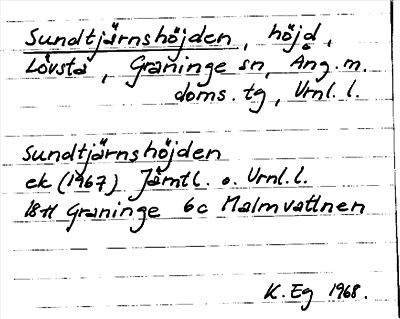 Sundtjärnshöjden, höjd,
Lövstå, Graninge sn, Ång. m.
doms. tg, Vrnl. l.
Sundtjärnshöjden
ek (1967) Jämtl. o. Vrnl. l.
18H Graninge 6c Malmvattnen
K. Eg 1968.